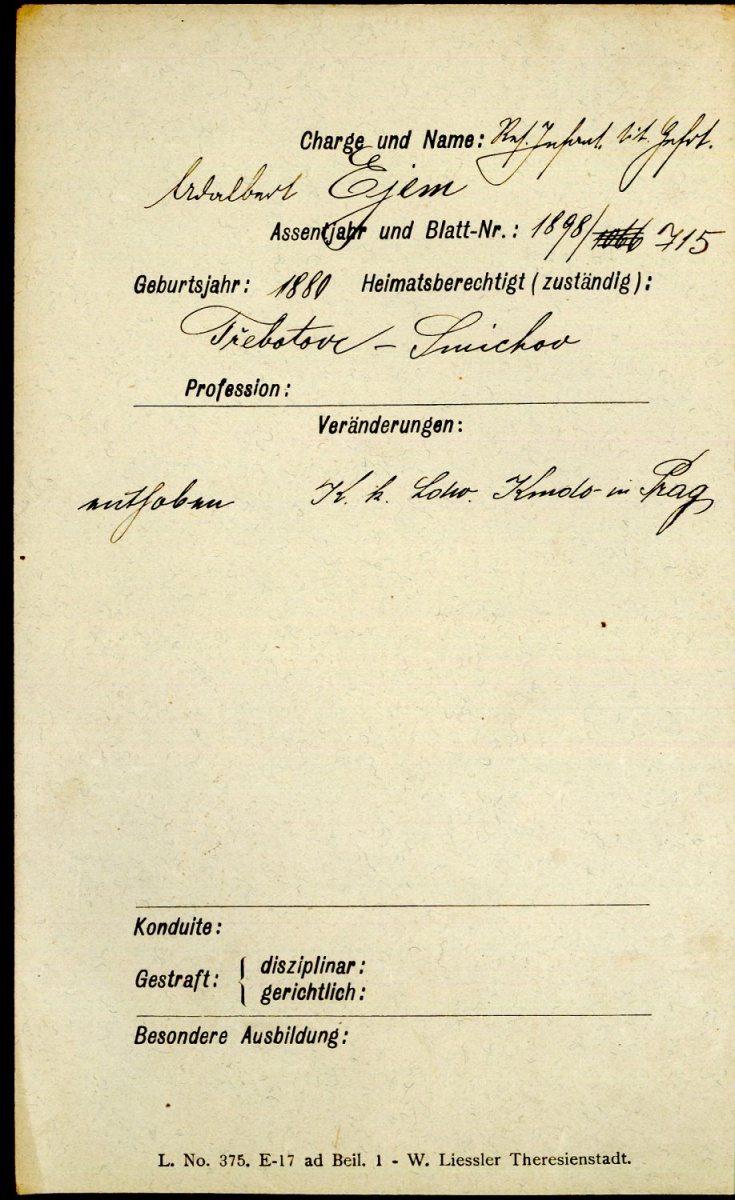 Charge und Name: Res. Infant. tit. Gefrt.
Adalbert Ejem
Assentjahr und Blatt-Nr.: 1898/1066 715
Geburtsjahr: 1880 Heimatsberechtigt (zuständig):
Třebotov – Smichov
Profession:
Veränderungen:
enthoben K. k. Ldw. Kmdo in Prag
Konduite:
Gestraft: { disziplinar:
gerichtlich:
Besondere Ausbildung:
L. No. 375. E-17 ad Beil. 1 - W. Liessler Theresienstadt.